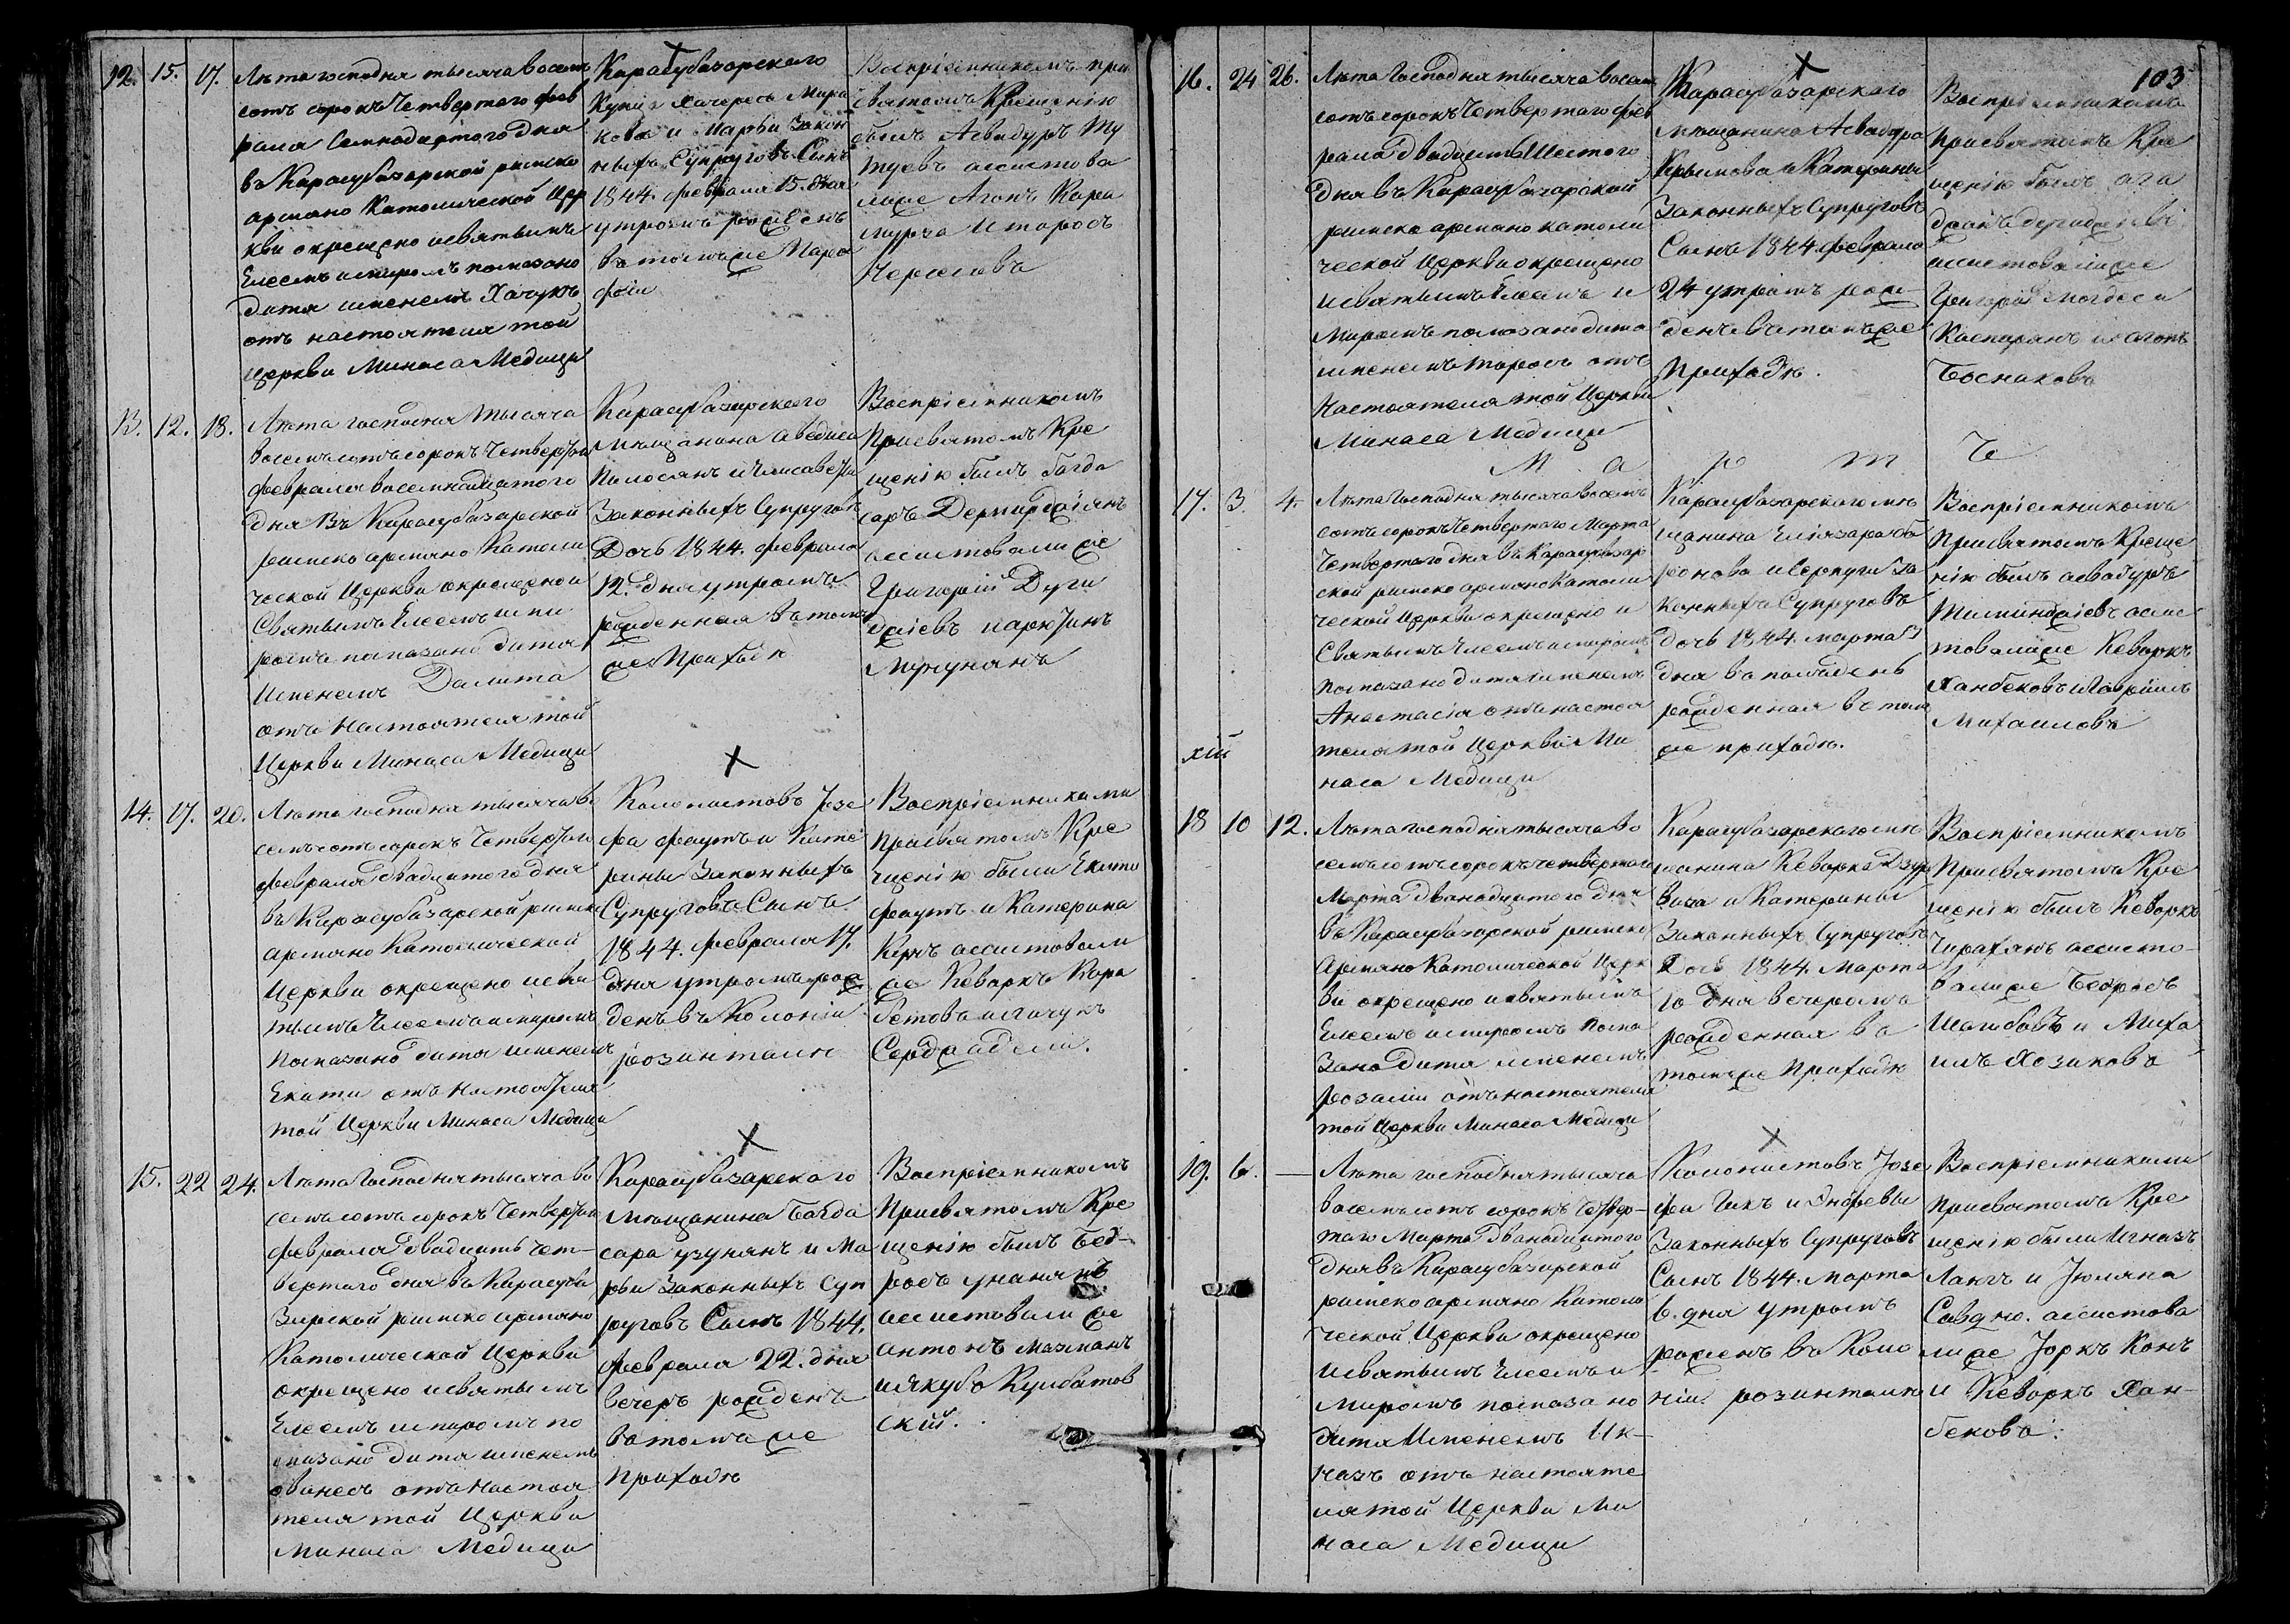 12. 15. 17.
Лѣта господня тысяча восемъ
сотъ сорокъ Четвертого фев
раля Семнадцатого дня
въ Карасубазарской римско
армяно Католической Цер
кви окрещено исвятымъ
Елеемъ имиромъ помазано
дитя именемъ Хачукъ
отъ настоятеля той
Церкви Минаса Медици
Карасубазарского
Купца Хачереса Мира
кова и Марѳи Закон
ныхъ Супруговъ Сынъ
1844. февраля 15. дня
утромъ рожденъ
Воспріемникомъ при
святомъ Крещенію
былъ Асвадуръ Ту
туевъ ассистова
лиже Агопъ Кара
мурза Иторосъ
Черасовъ
13. 12. 18.
Лѣта господня тысяча
восемъсотъ сорокъ Четвертого
февраля восемнадцатого
дня Въ Карасубазарской
римско армяно Католи
ческой Церкви окрещено и
Святымъ Елеемъ ими
ромъ помазано дитя
Именемъ Далита
отъ Настоятеля той
Церкви Минаса Медици
Карасубазарского
мѣщанина Аведиса
Полосянъ и Елисаветы
Законныхъ Супруговъ
Дочь 1844. февраля
12. дня утромъ
рожденная в томъ
же Приходѣ
Воспріемникомъ
Присвятомъ Кре
щенію былъ богда
саръ Демирджіянъ
ассистовали же
Григорій Дуги
джіевъ
14. 17. 20.
Лѣта господня тысяча во
семъ сотъ сорокъ Четвертого
февраля двадцатого дня
въ Карасубазарской римско
армяно Католической
Церкви окрещено исвя
тымъ Елеемъ имиромъ
Помазано дитя именемъ
Екати отъ настоятеля
той Церкви Минаса Медици
Колонистовъ Іозе
фа фаутъ и Кате
рины Законныхъ
Супруговъ Сынъ
1844. февраля 17.
дня утромъ рож
денъ въ Колоніи
розинталю
Воспріемниками
Присвятомъ Кре
щенію были Екати
фаутъ и Катерина
Кернъ ассистовали
же Кеваркъ Кара
бетовъ и хачукъ
15. 22 24.
Лѣта Господня тысяча во
семъсотъ сорокъ Четвертого
февраля двадцать чет-
вертого дня въ Карасуба
Зарской римско армяно
Католической Церкви
окрещено исвятымъ
Елеемъ имиромъ по
мазано дитя именемъ
ованесъ отъ Настоя
теля той Церкви
Минаса Медици
Карасубазарского
Мѣщанина Багда
сара узунянъ и Ма
рѳи Законныхъ Суп
руговъ Сынъ 1844.
февраля 22. дня
вечеръ рожденъ
в томъ же
Приходѣ
Воспріемникомъ
Присвятомъ Кре
щенію былъ Бед-
росъ унанянъ
ассистовали же
антонъ мазманъ
иякубъ Кулбатов
скій.
103
16. 24 26.
Лѣта Господня тысяча восемъ
сотъ сорокъ Четвертого фев
раля двадцать Шестого
дня въ Карасубазарской
римско армяно католи
ческой Церкви окрещено
Исвятымъ Елеемъ и
Миромъ помазано дитя
именемъ торосъ отъ
Настоятеля той Церкви
Минаса Медици
Карасубазарского
мѣщанина Асвадура
Крымова и Катерины
Законныхъ Супруговъ
Сынъ 1844. февраля
24 утромъ рож-
денъ въ томъ же
Приходѣ.
Воспріемникомъ
Присвятомъ Кре
щенію былъ
ассистовалиже
Григорій
Каспарянъ и агопъ
Босняковъ
М а р т Ъ
17. 3. 4.
Лѣта Господня тысяча восемъ
сотъ сорокъ Четвертого Марта
Четвертого дня въ Карасубазар
ской римско армяно Католи
ческой Церкви окрещено и
Святымъ Елеемъ имиромъ
помазано дитя именемъ
Анастасія отъ настоя
теля той Церкви Ми
наса Медици
Карасубазарского мѣ
щанина Еліазара ба
ронова и Серпуги За
конныхъ Супруговъ
дочь 1844. марта 3
дня в полъдень
рожденная в томъ
же приходѣ.
Воспріемникомъ
Присвятомъ Креще
нію былъ асвадуръ
Тиминджіевъ асис
товалиже Кеваркъ
Ханбековъ и Гавріилъ
Михаиловъ
хііі
18 10 12.
Лѣта господня тысяча во
семъсотъ сорокъ четвертого
Марта двенадцатого дня
въ Карасубазарской римско
Армяно Католической Церк
ви окрещено исвятымъ
Елеемъ имиромъ пома
зано дитя именемъ
розалія отъ настоятеля
той Церкви Минаса Медици
Карасубазарского мѣ
щанина Кеворка Дзур
ваза и Катерины
Законныхъ Супруговъ
Дочь 1844. Марта
10 дня вечеромъ
рожденная в
томъ же Приходѣ
Воспріемникомъ
Присвятомъ Кре
щенію былъ Кеворкъ
Чирахянъ ассисто-
валиже Бедросъ
Шашбовъ и Миха
илъ Козаковъ
19. 6. —
Лѣта господня тысяча
восемъсотъ сорокъ Четвер-
таго Марта двенадцатого
дня въ Карасубазарской
римско армяно Католи
ческой Церкви окрещено
Исвятымъ Елеемъ и
Миромъ помазано
дитя Именемъ Иж-
назъ отъ настояте
ля той Церкви Ми
наса Медици
Колонистовъ Іозе
фа Гикъ и Энофевы
Законныхъ Супруговъ
Сынъ 1844. Марта
6. дня утромъ
роженъ въ Коло
ніи розинталю
Воспріемниками
Присвятомъ Кре
щенію были Игназъ
Лангъ и Юліяна
ассистова
лиже Іоркъ Конъ
и Кеворкъ Хан-
бековъ.